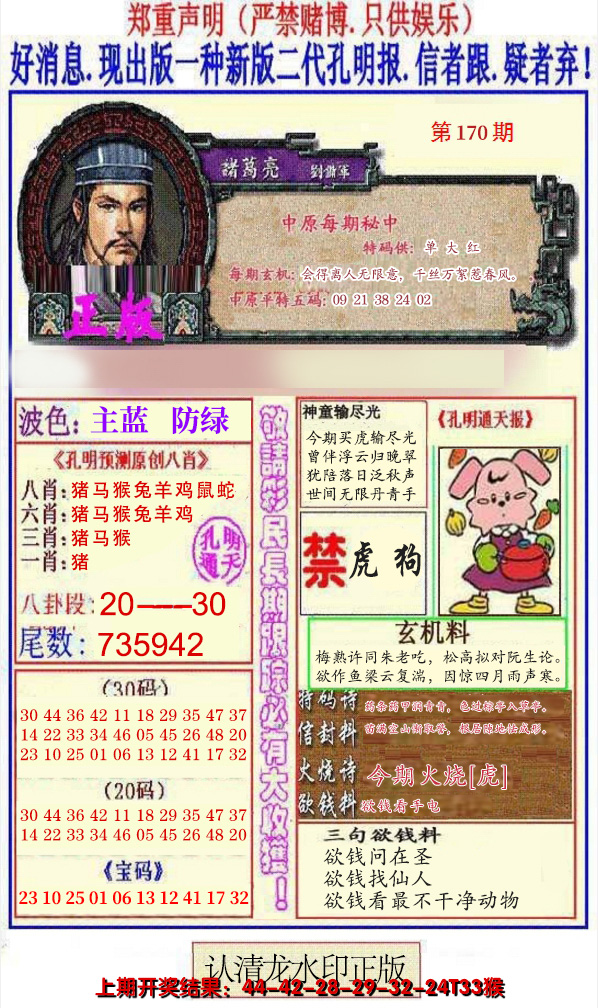 郑重声明（严禁赌博.只供娱乐）
好消息.现出版一种新版二代孔明报.信者跟.疑者弃！
第170期
諸葛亮 劉備軍
中原每期秘中
特码供：单大红
每期玄机：会得离人无限意，千丝万絮惹春风。
中原平特五码：09 21 38 24 02
正版
波色：主蓝 防绿
《孔明预测原创八肖》
八肖：猪马猴兔羊鸡鼠蛇
六肖：猪马猴兔羊鸡
三肖：猪马猴
一肖：猪
孔明
通天
八卦段：20——30
尾数：735942
（30码）
30 44 36 42 11 18 29 35 47 37
14 22 33 34 46 05 45 26 48 20
23 10 25 01 06 13 12 41 17 32
（20码）
30 44 36 42 11 18 29 35 47 37
14 22 33 34 46 05 45 26 48 20
《宝码》
23 10 25 01 06 13 12 41 17 32
敬請彩民長期跟踪必有大收獲！
神童输尽光
今期买虎输尽光
曾伴浮云归晚翠
犹陪落日泛秋声
世间无限丹青手
《孔明通天报》
禁 虎 狗
玄机料
梅熟许同朱老吃，松高拟对阮生论。
欲作鱼梁云复湍，因惊四月雨声寒。
特码诗
药条药甲润青青，色过棕亭入草亭。
信封料
苗满空山惭取誉，根居隙地怯成形。
火烧诗
今期火烧[虎]
欲钱料
欲钱看手电
三句欲钱料
欲钱问在圣
欲钱找仙人
欲钱看最不干净动物
认清龙水印正版
上期开奖结果：44-42-28-29-32-24T33猴